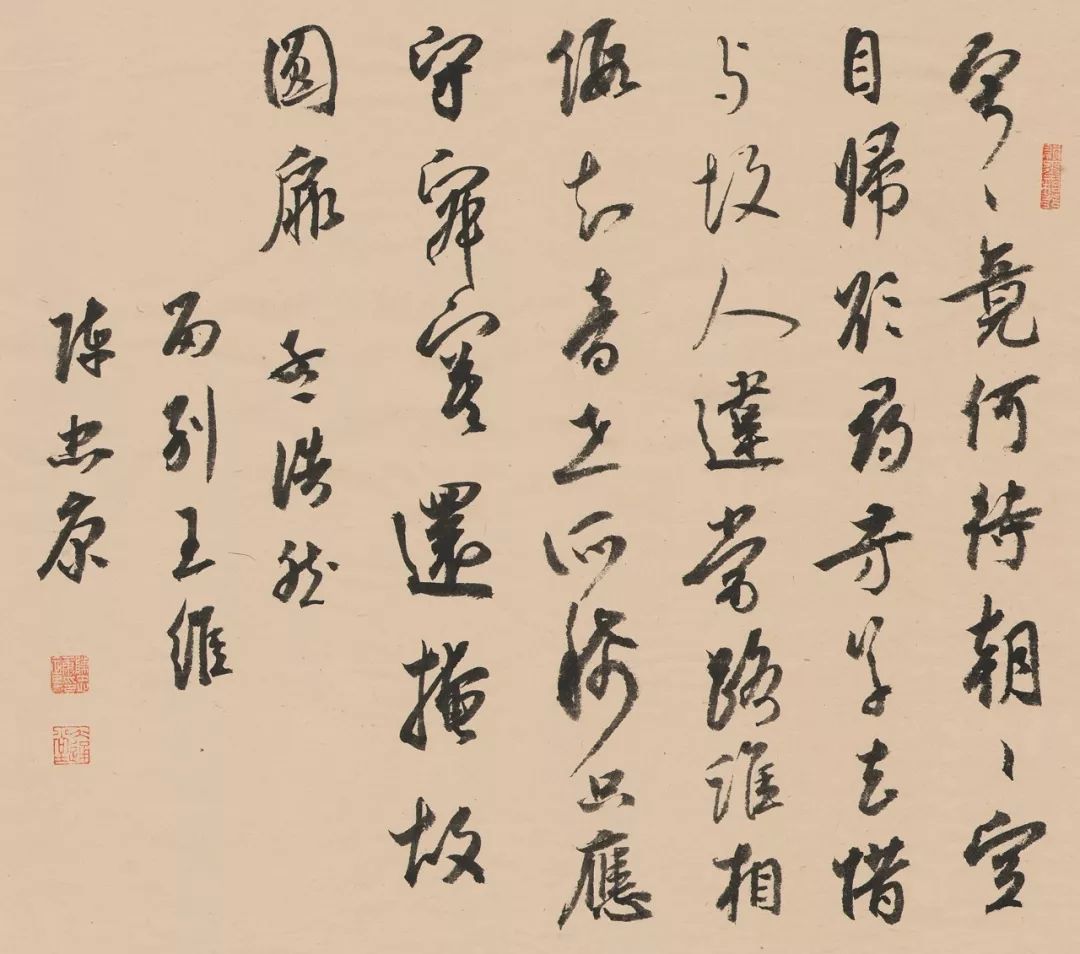 寂〻竟何待朝〻空
自歸欲尋芳草去惜
与故人違當路誰相
假知音世所稀只應
守寂寞還掩故
園扉 孟浩然
留別王維
陳忠康